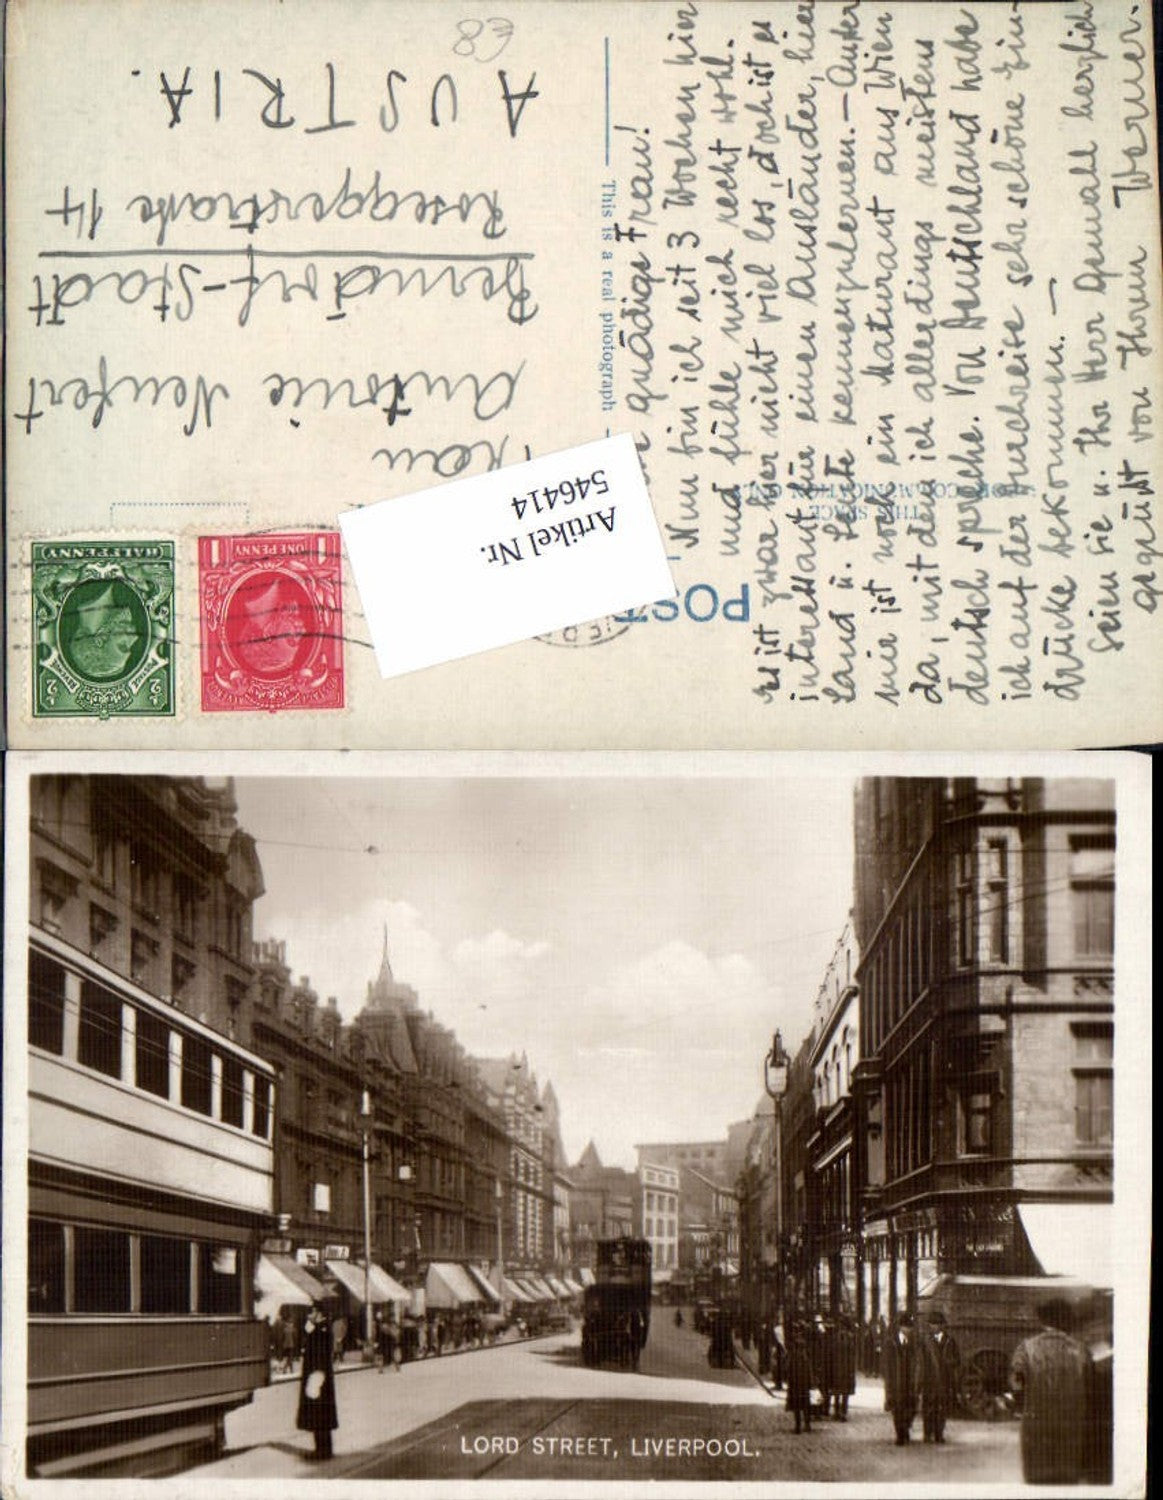 €8
POST
This is a real photograph
THIS SPACE
FOR COMMUNICATION ONLY
gnädige Frau!
Nun bin ich seit 3 Wochen hier
und fühle mich recht wohl.
Es ist zwar hier nicht viel los, doch ist es
interessant für einen Ausländer, hier
Land u. Leute kennenzulernen. – Außer
mir ist noch ein Maturant aus Wien
da, mit dem ich allerdings meistens
deutsch spreche. Von Deutschland habe
ich auf der Durchreise sehr schöne Ein-
drücke bekommen. –
Seien Sie u. Ihr Herr Gemahl herzlich
gegrüßt von Ihrem Werner.
Frau
Antonie Neufert
Berndorf-Stadt
Roseggerstraße 14
AUSTRIA.
Artikel Nr.
546414
POSTAGE REVENUE
ONE PENNY
1 1
POSTAGE REVENUE
½ ½
HALFPENNY
LORD STREET, LIVERPOOL.